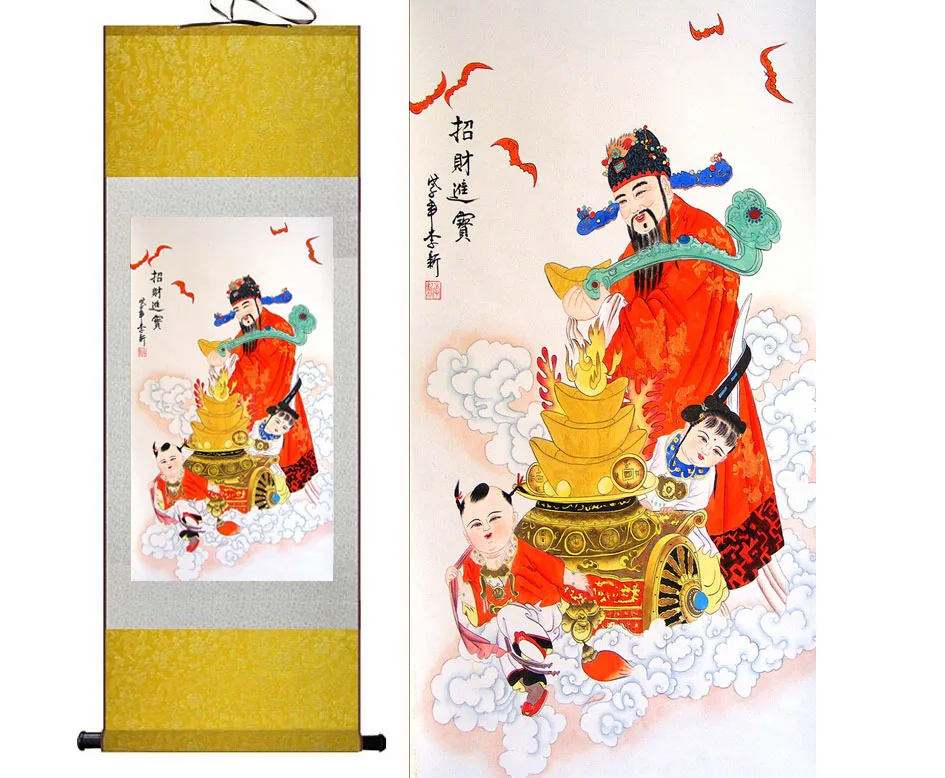 招財進寶
李新
招財進寶
李新